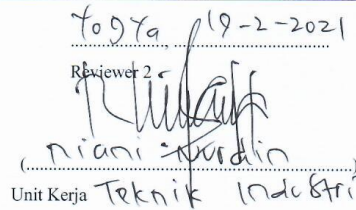 Yogya, 19-2-2021
Reviewer 2
(Riani Nurdin)
Unit Kerja Teknik Industri